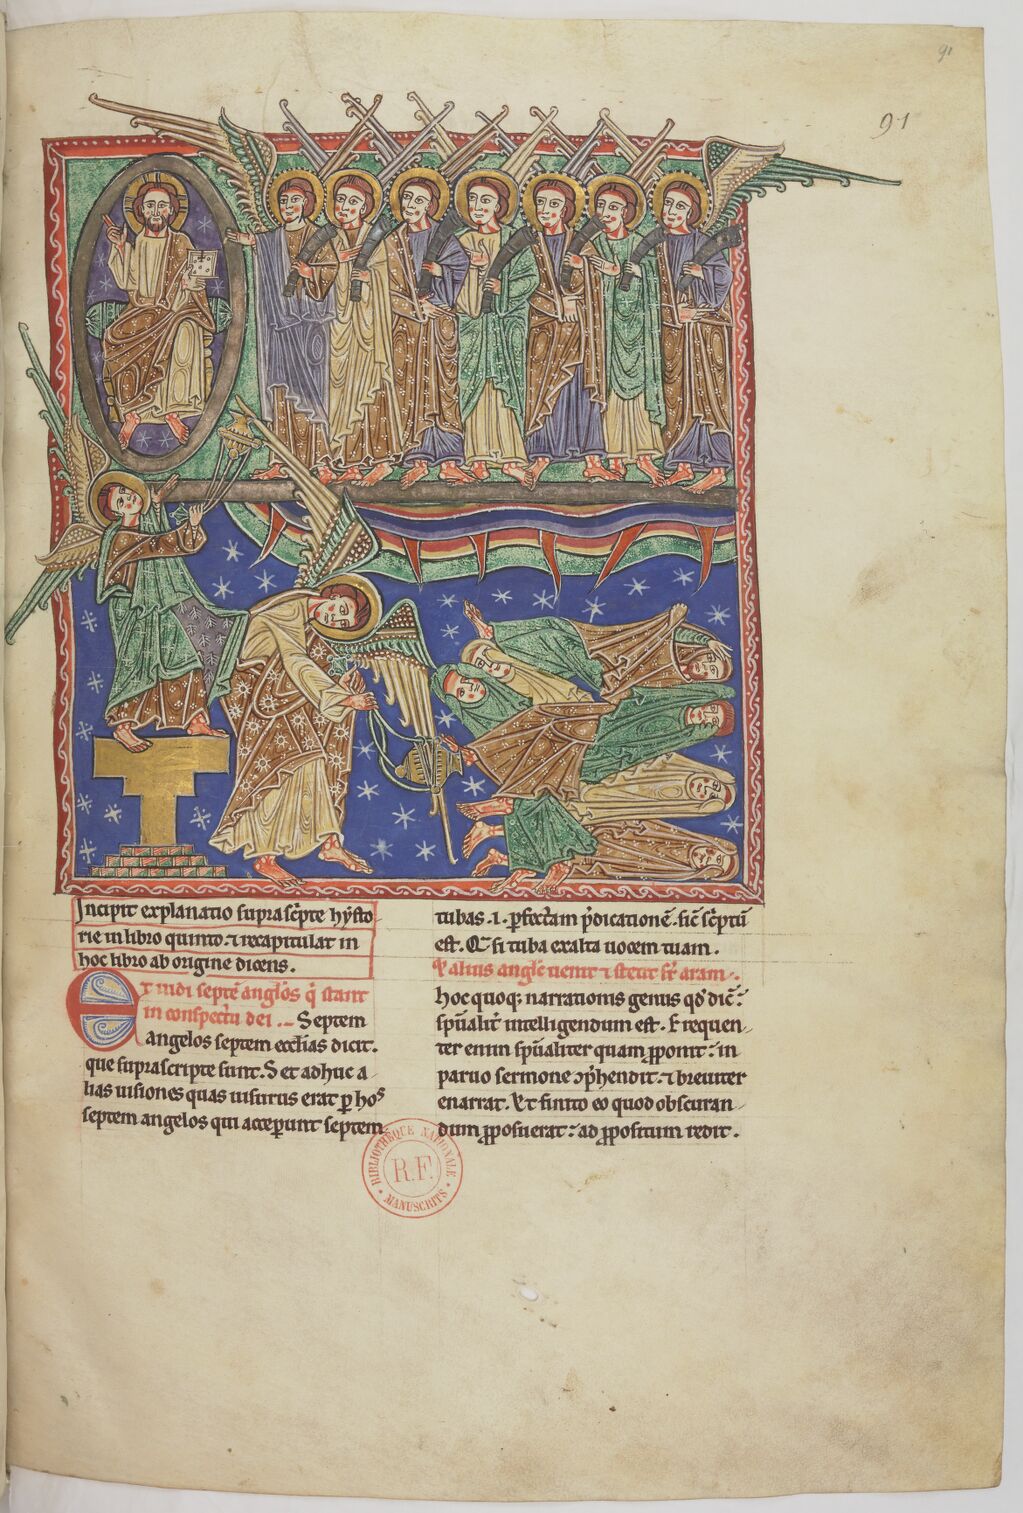 91
91
Incipit explanatio suprascͥpte hysto
rie in libro quinto. ⁊ recapitulat in
hoc libro ab origine dicens.
Et uidi septē anglos q̄ stant
in conspectu dei .. Septem
angelos septem ecclīas dicit.
que suprascripte sunt. Set adhuc a
lias uisiones quas uisurus erat ꝑ hoˢ
septem angelos qui acceperunt septem
tubas .i. ꝑfectam p̄dicationē. sic̄ scͥptū
est. Qͣsi tuba exalta uocem tuam.
Et alius angłs uenit ⁊ stetit sr̄ aram.
hoc quoqꝫ narrationis genus qd̓ dic̄:
sp̄ualit̄ intelligendum est. Frequen
ter enim sp̄ualiter quam ꝓponit: in
paruo sermone ꝯp̄hendit. ⁊ breuiter
enarrat. Et finito eo quod obscuran
dum ꝓposuerat: ad ꝓpositum redit.
BIBLIOTHÈQUE NATIONALE
R.F.
MANUSCRITS